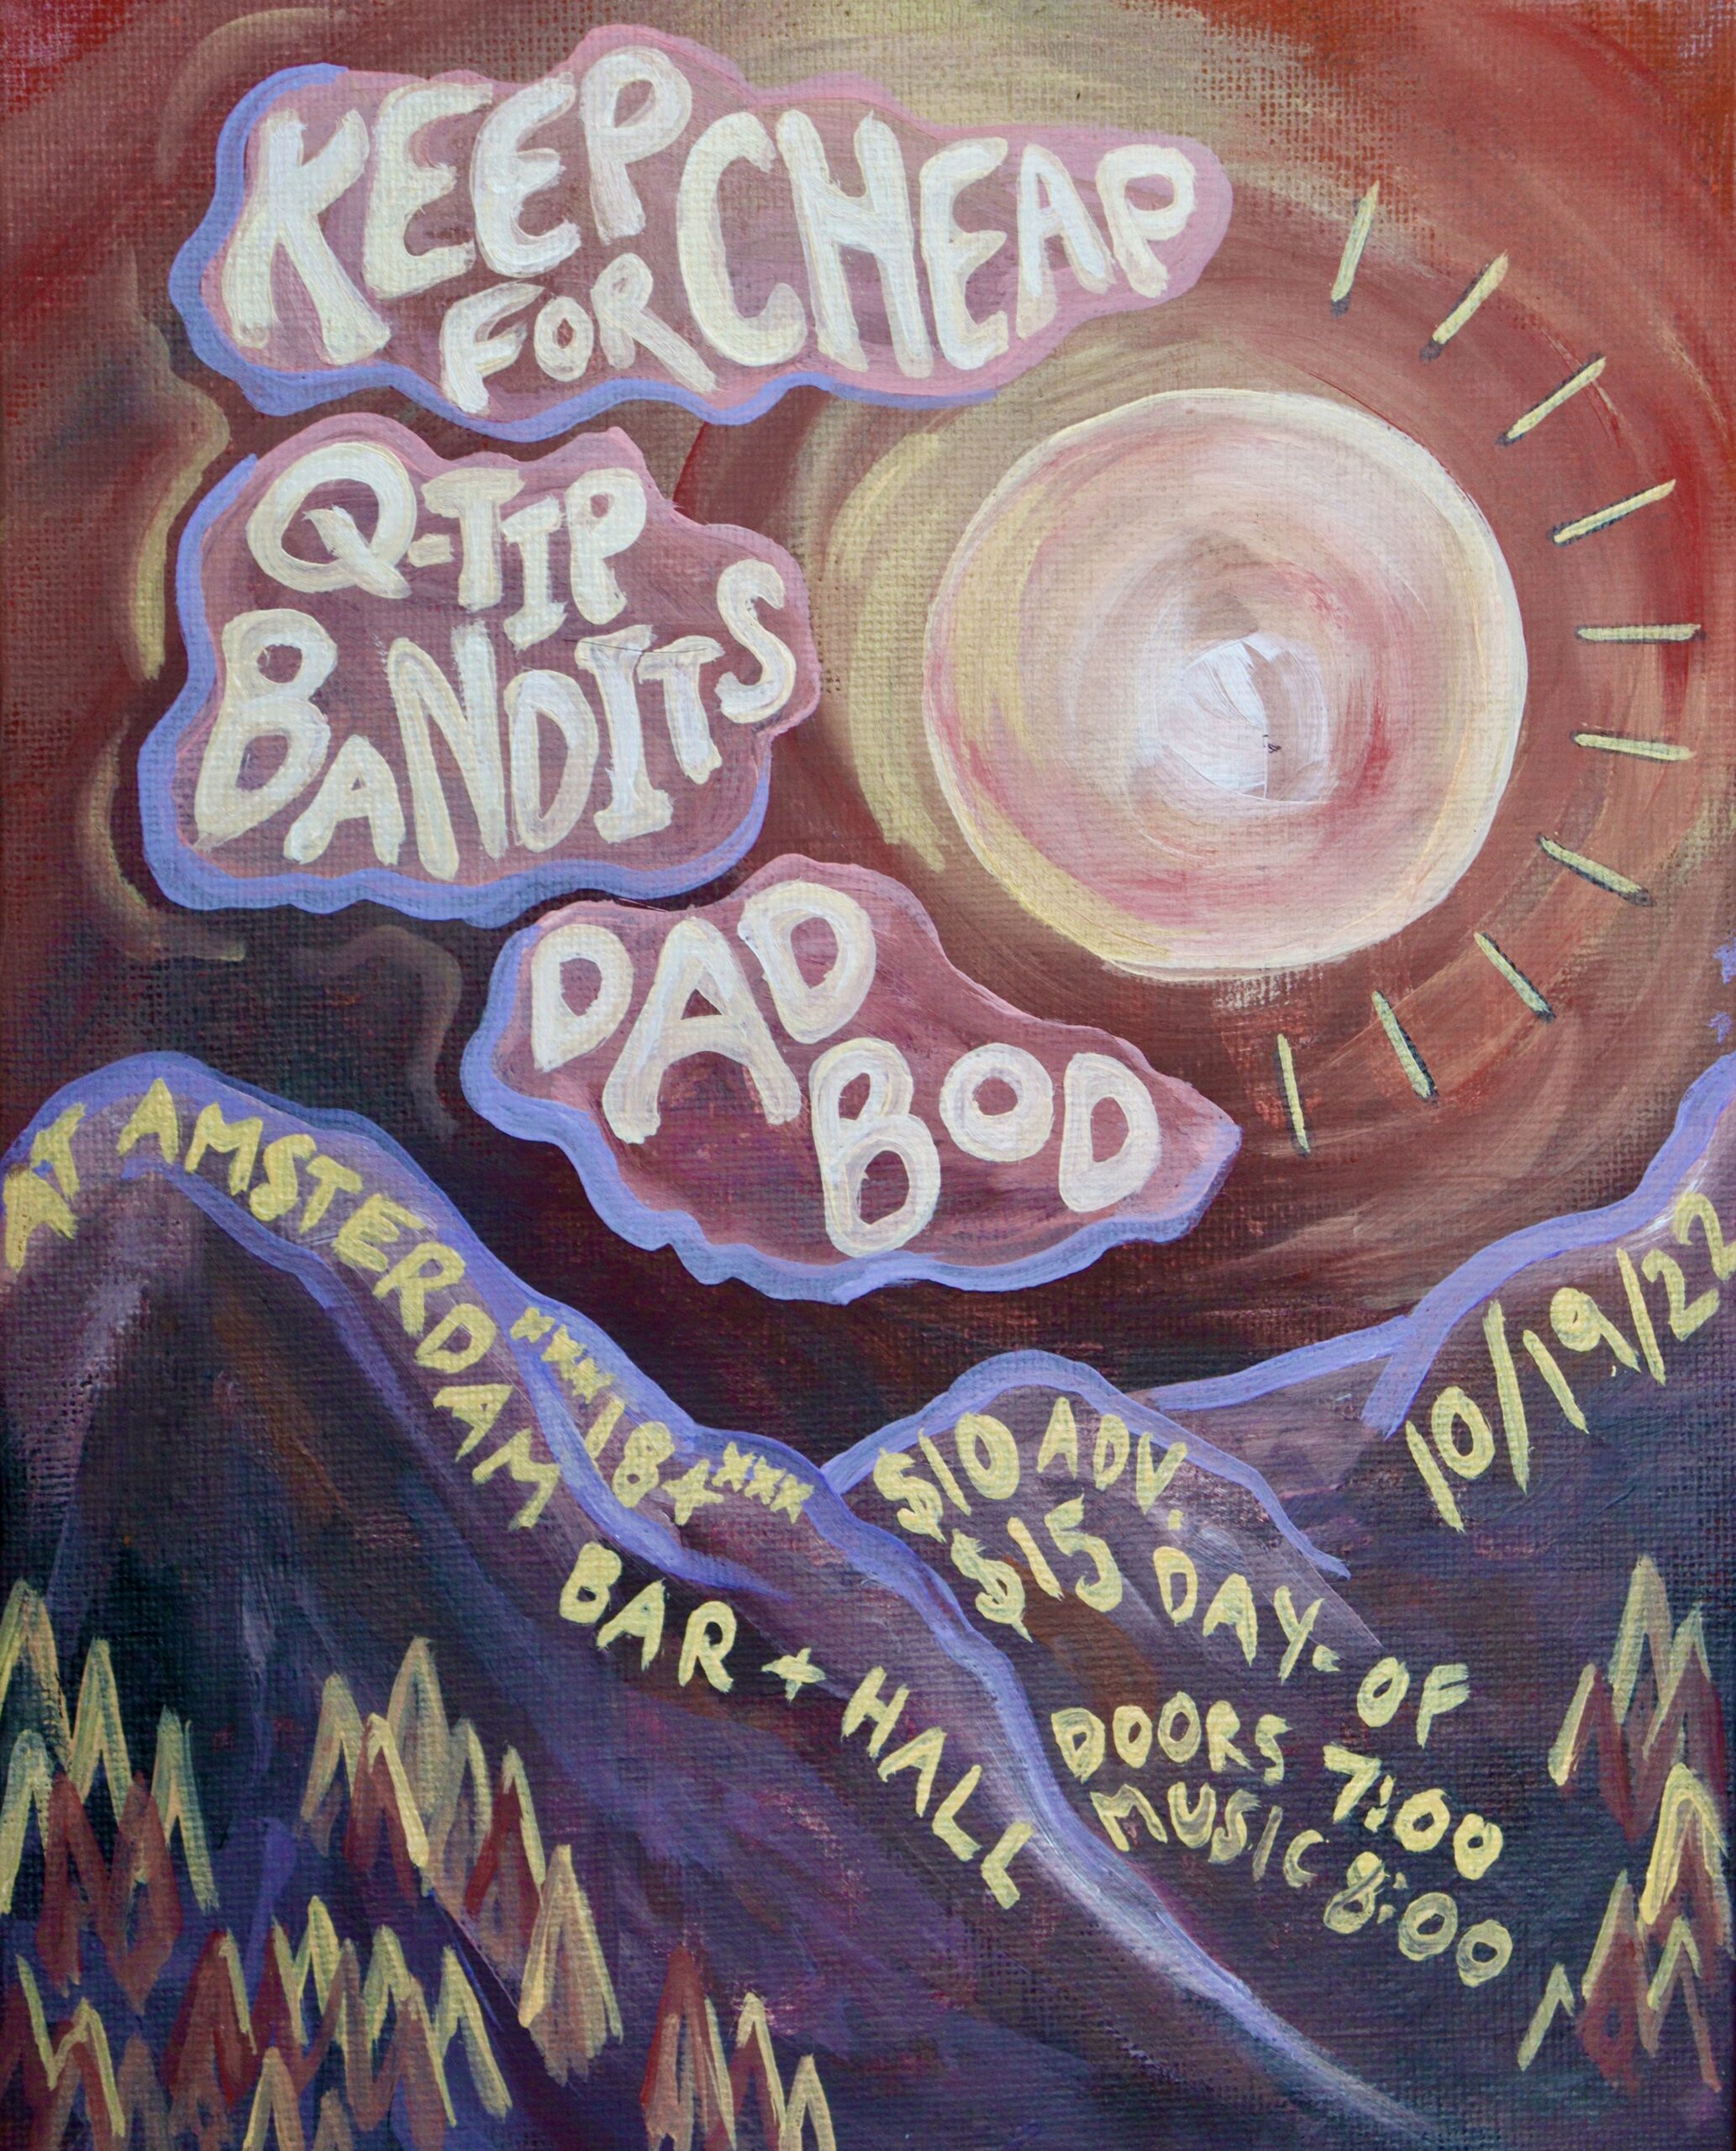 KEEP
FOR CHEAP
Q-TIP
BANDITS
DAD
BOD
AT AMSTERDAM
BAR + HALL
xxxx18+xxxx
10/19/22
$10 ADV.
$15 DAY-OF
DOORS 7:00
MUSIC 8:00